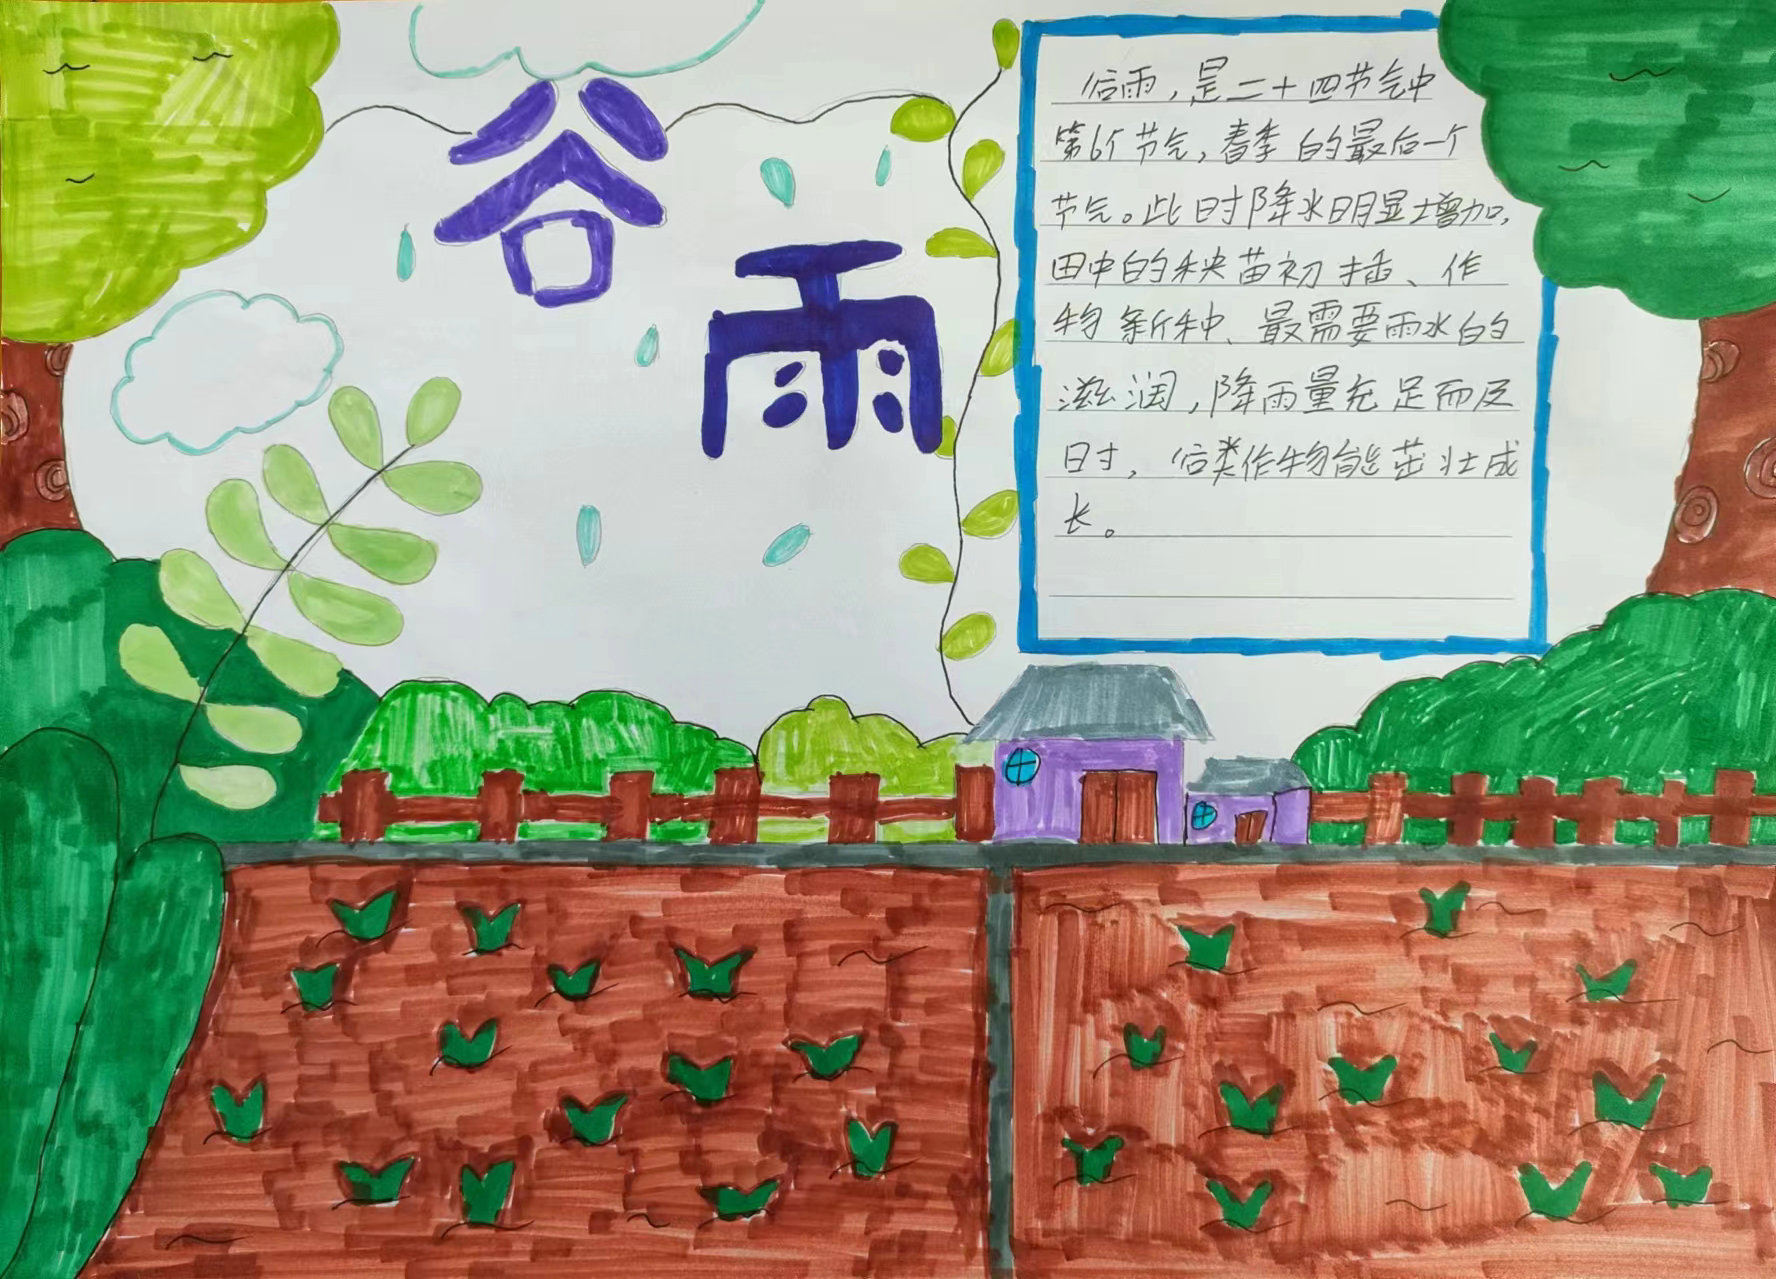 谷雨
谷雨，是二十四节气中
第6个节气，春季的最后一个
节气。此时降水明显增加，
田中的秧苗初插、作
物新种、最需要雨水的
滋润，降雨量充足而及
时，谷类作物能茁壮成
长。